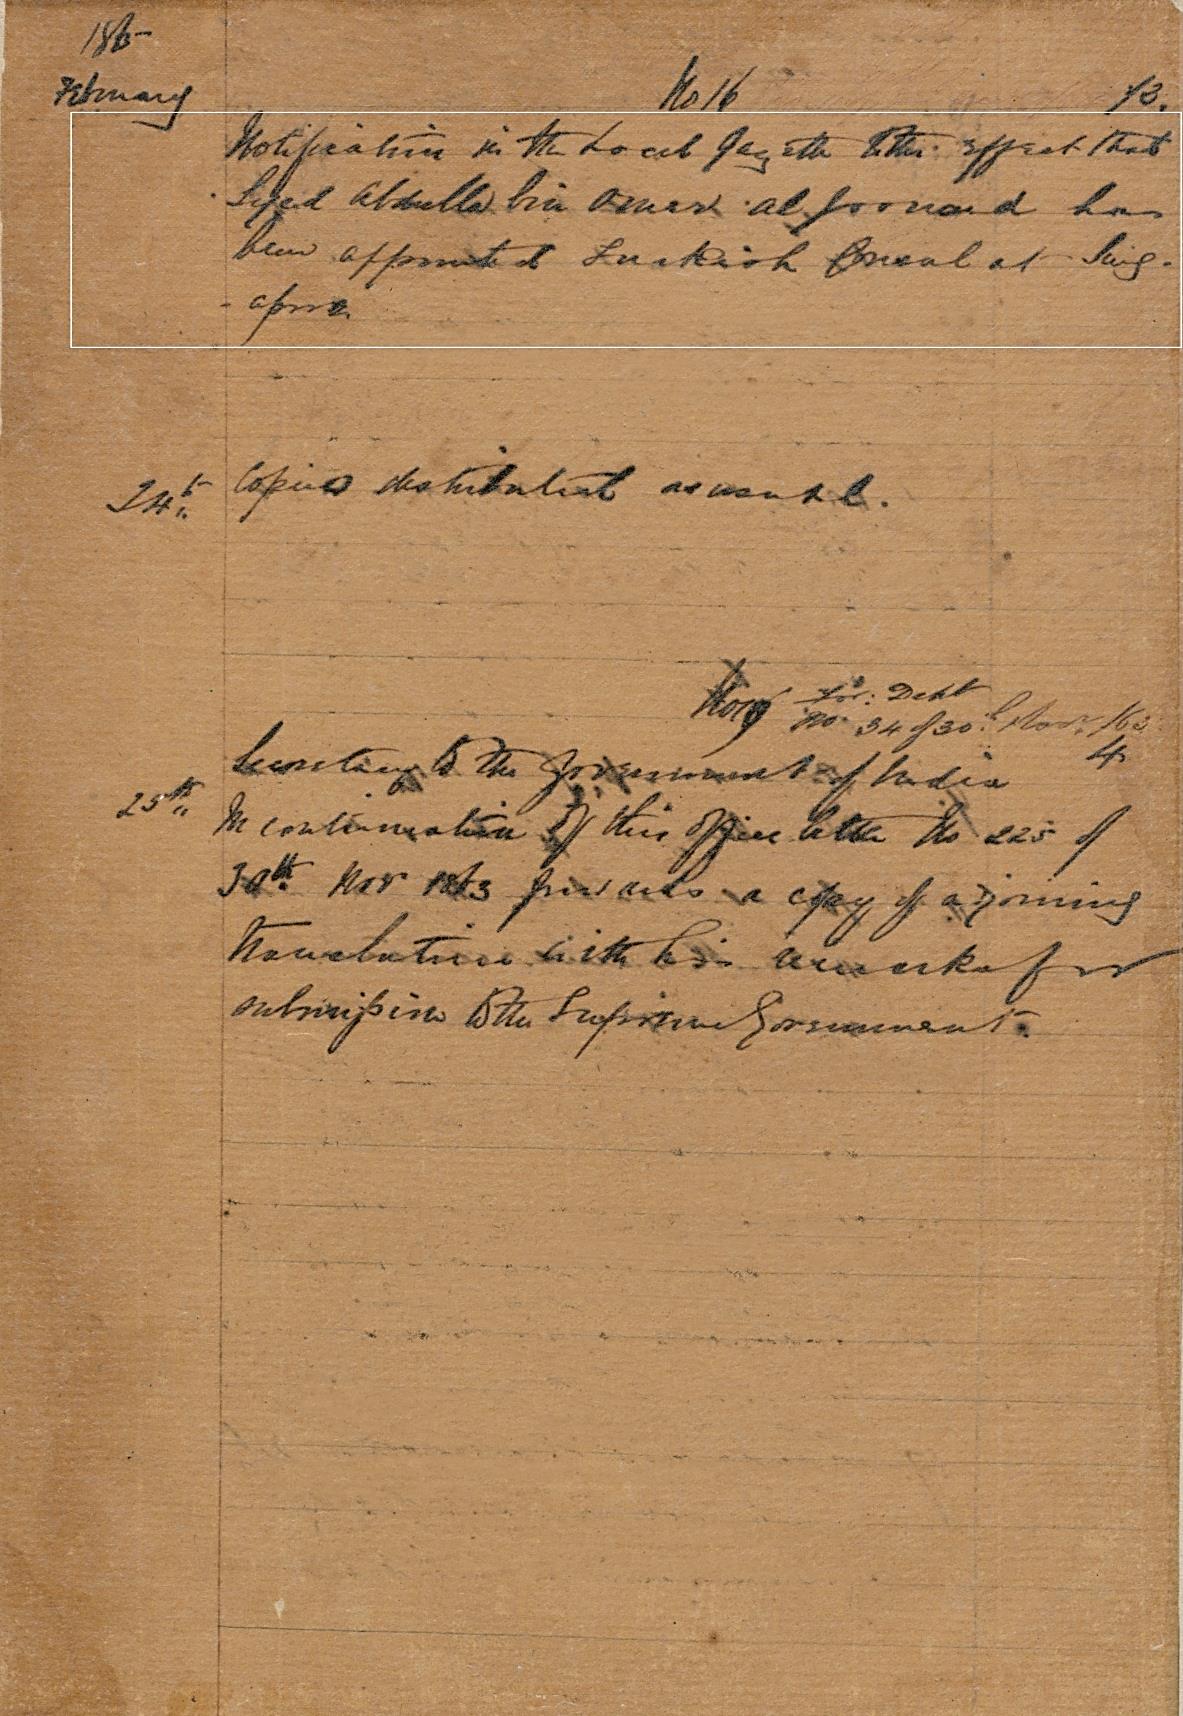 1865
February
No 16 /3.
Notification in the Local Gazette to the effect that
Syed Abdulla bin Omar al Joonaid has
been appointed Turkish Consul at Sing-
-apore.
24th Copies distributed as usual.
For: Dept
No 34 of 30th Nov /63
4
Secretary to the Government of India
25th In continuation of this office letter No 225 of
30th Nov 1863 forwards a copy of adjoining
translation with his remarks for
submission to the Supreme Government.